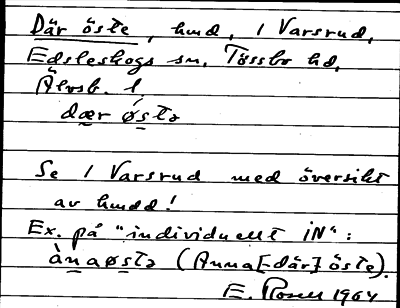 Där öste, hmd, 1 Varsrud,
Edsleskogs sn, Tössbo hd,
Älvsb. l.
dær østə
Se 1 Varsrud med översikt
av hmdd!
Ex. på "individuellt IN":
ànaøstə (Anna [där] öste).
E. Rosell 1964